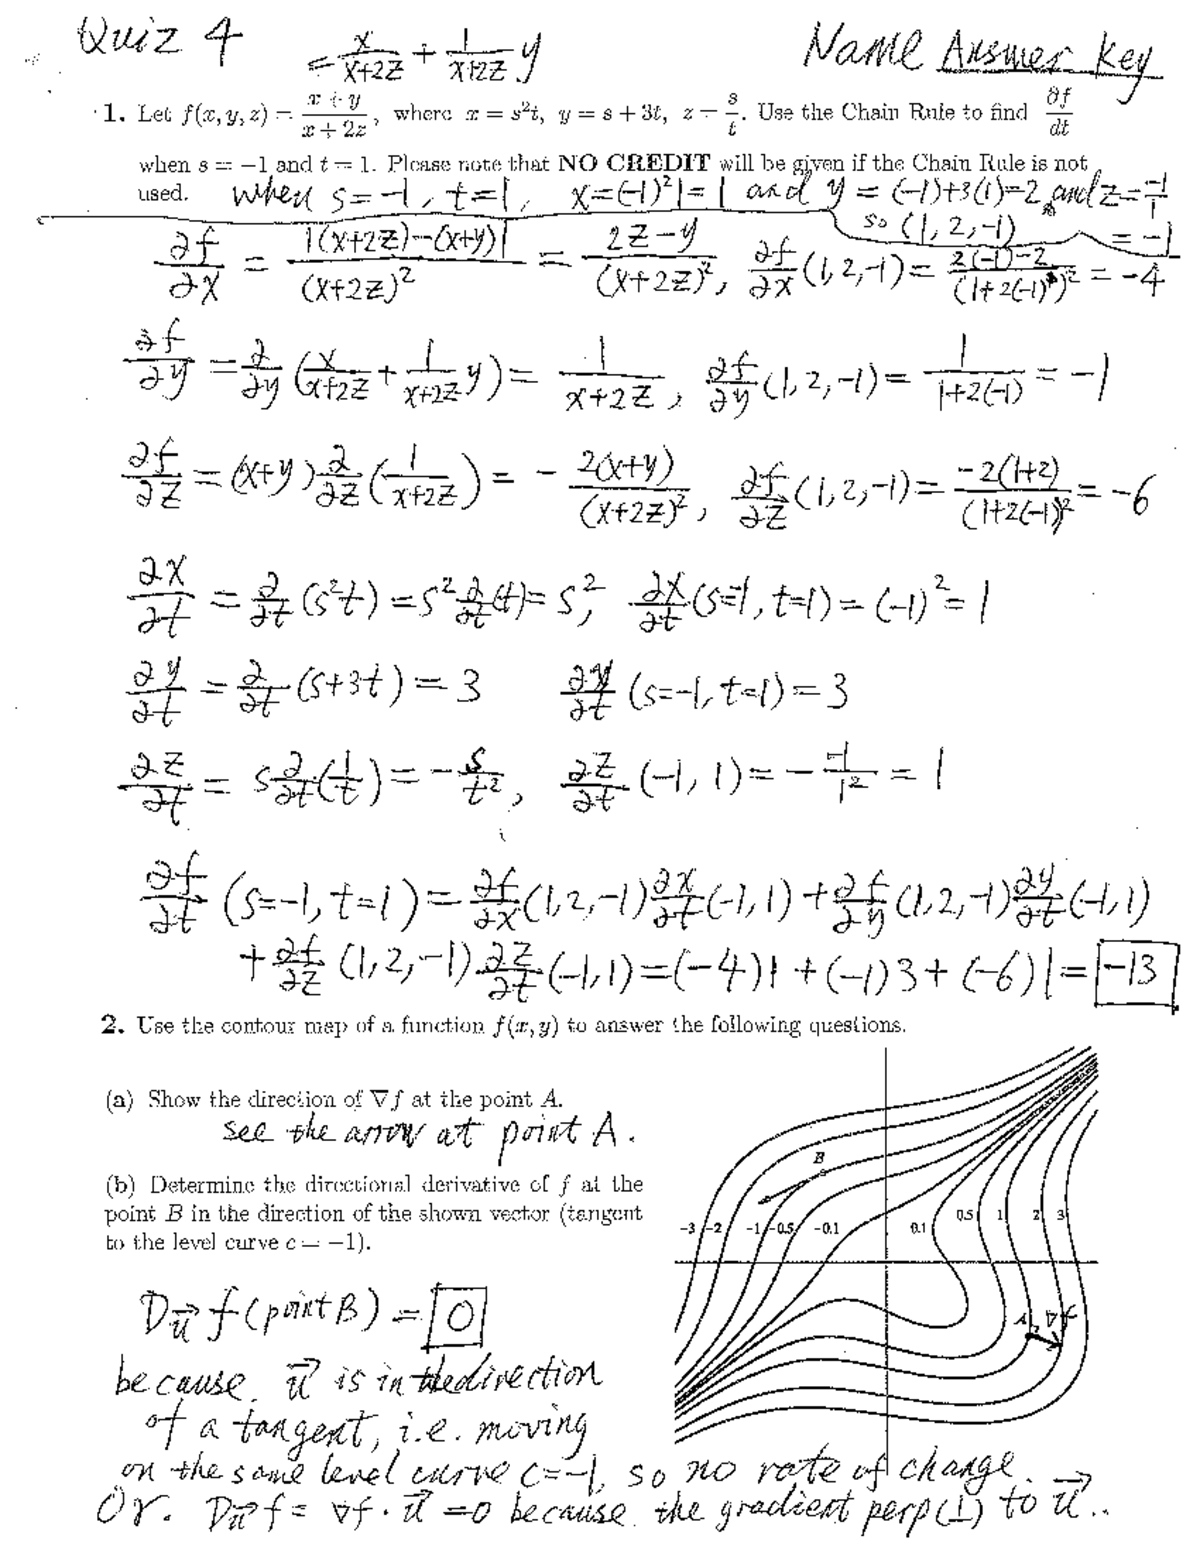 Quiz 4
Name Answer Key
= x/(x+2z) + 1/(x+2z) y
1. Let f(x, y, z) = (x + y)/(x + 2z), where x = s²t, y = s + 3t, z = s/t. Use the Chain Rule to find ∂f/dt
when s = −1 and t = 1. Please note that NO CREDIT will be given if the Chain Rule is not
used. When s=-1, t=1, x=(-1)²1=1 and y=(-1)+3(1)=2 and z=-1/1 = -1
so (1, 2, -1)
∂f/∂x = (1(x+2z)-(x+y)1)/(x+2z)² = (2z-y)/(x+2z)², ∂f/∂x (1,2,-1) = (2(-1)-2)/(1+2(-1))² = -4
∂f/∂y = ∂/∂y (x/(x+2z) + 1/(x+2z) y) = 1/(x+2z), ∂f/∂y (1,2,-1) = 1/(1+2(-1)) = -1
∂f/∂z = (x+y) ∂/∂z (1/(x+2z)) = - 2(x+y)/(x+2z)², ∂f/∂z (1,2,-1) = -2(1+2)/(1+2(-1))² = -6
∂x/∂t = ∂/∂t (s²t) = s² ∂/∂t (t) = s², ∂x/∂t (s=-1, t=1) = (-1)² = 1
∂y/∂t = ∂/∂t (s+3t) = 3 ∂y/∂t (s=-1, t=1) = 3
∂z/∂t = s ∂/∂t (1/t) = - s/t², ∂z/∂t (-1, 1) = - -1/1² = 1
∂f/∂t (s=-1, t=1) = ∂f/∂x (1,2,-1) ∂x/∂t (-1,1) + ∂f/∂y (1,2,-1) ∂y/∂t (-1,1)
+ ∂f/∂z (1,2,-1) ∂z/∂t (-1,1) = (-4)1 + (-1)3 + (-6)1 = -13
2. Use the contour map of a function f(x, y) to answer the following questions.
(a) Show the direction of ∇f at the point A.
see the arrow at point A.
(b) Determine the directional derivative of f at the
point B in the direction of the shown vector (tangent
to the level curve c = −1).
D_u⃗ f (point B) = 0
because u⃗ is in the direction
of a tangent, i.e. moving
on the same level curve c=-1, so no rate of change.
Or. D_u⃗ f = ∇f · u⃗ = 0 because the gradient perp (⊥) to u⃗..
B
-3 -2 -1 -0.5 -0.1 0.1 0.5 1 2 3
A ∇f